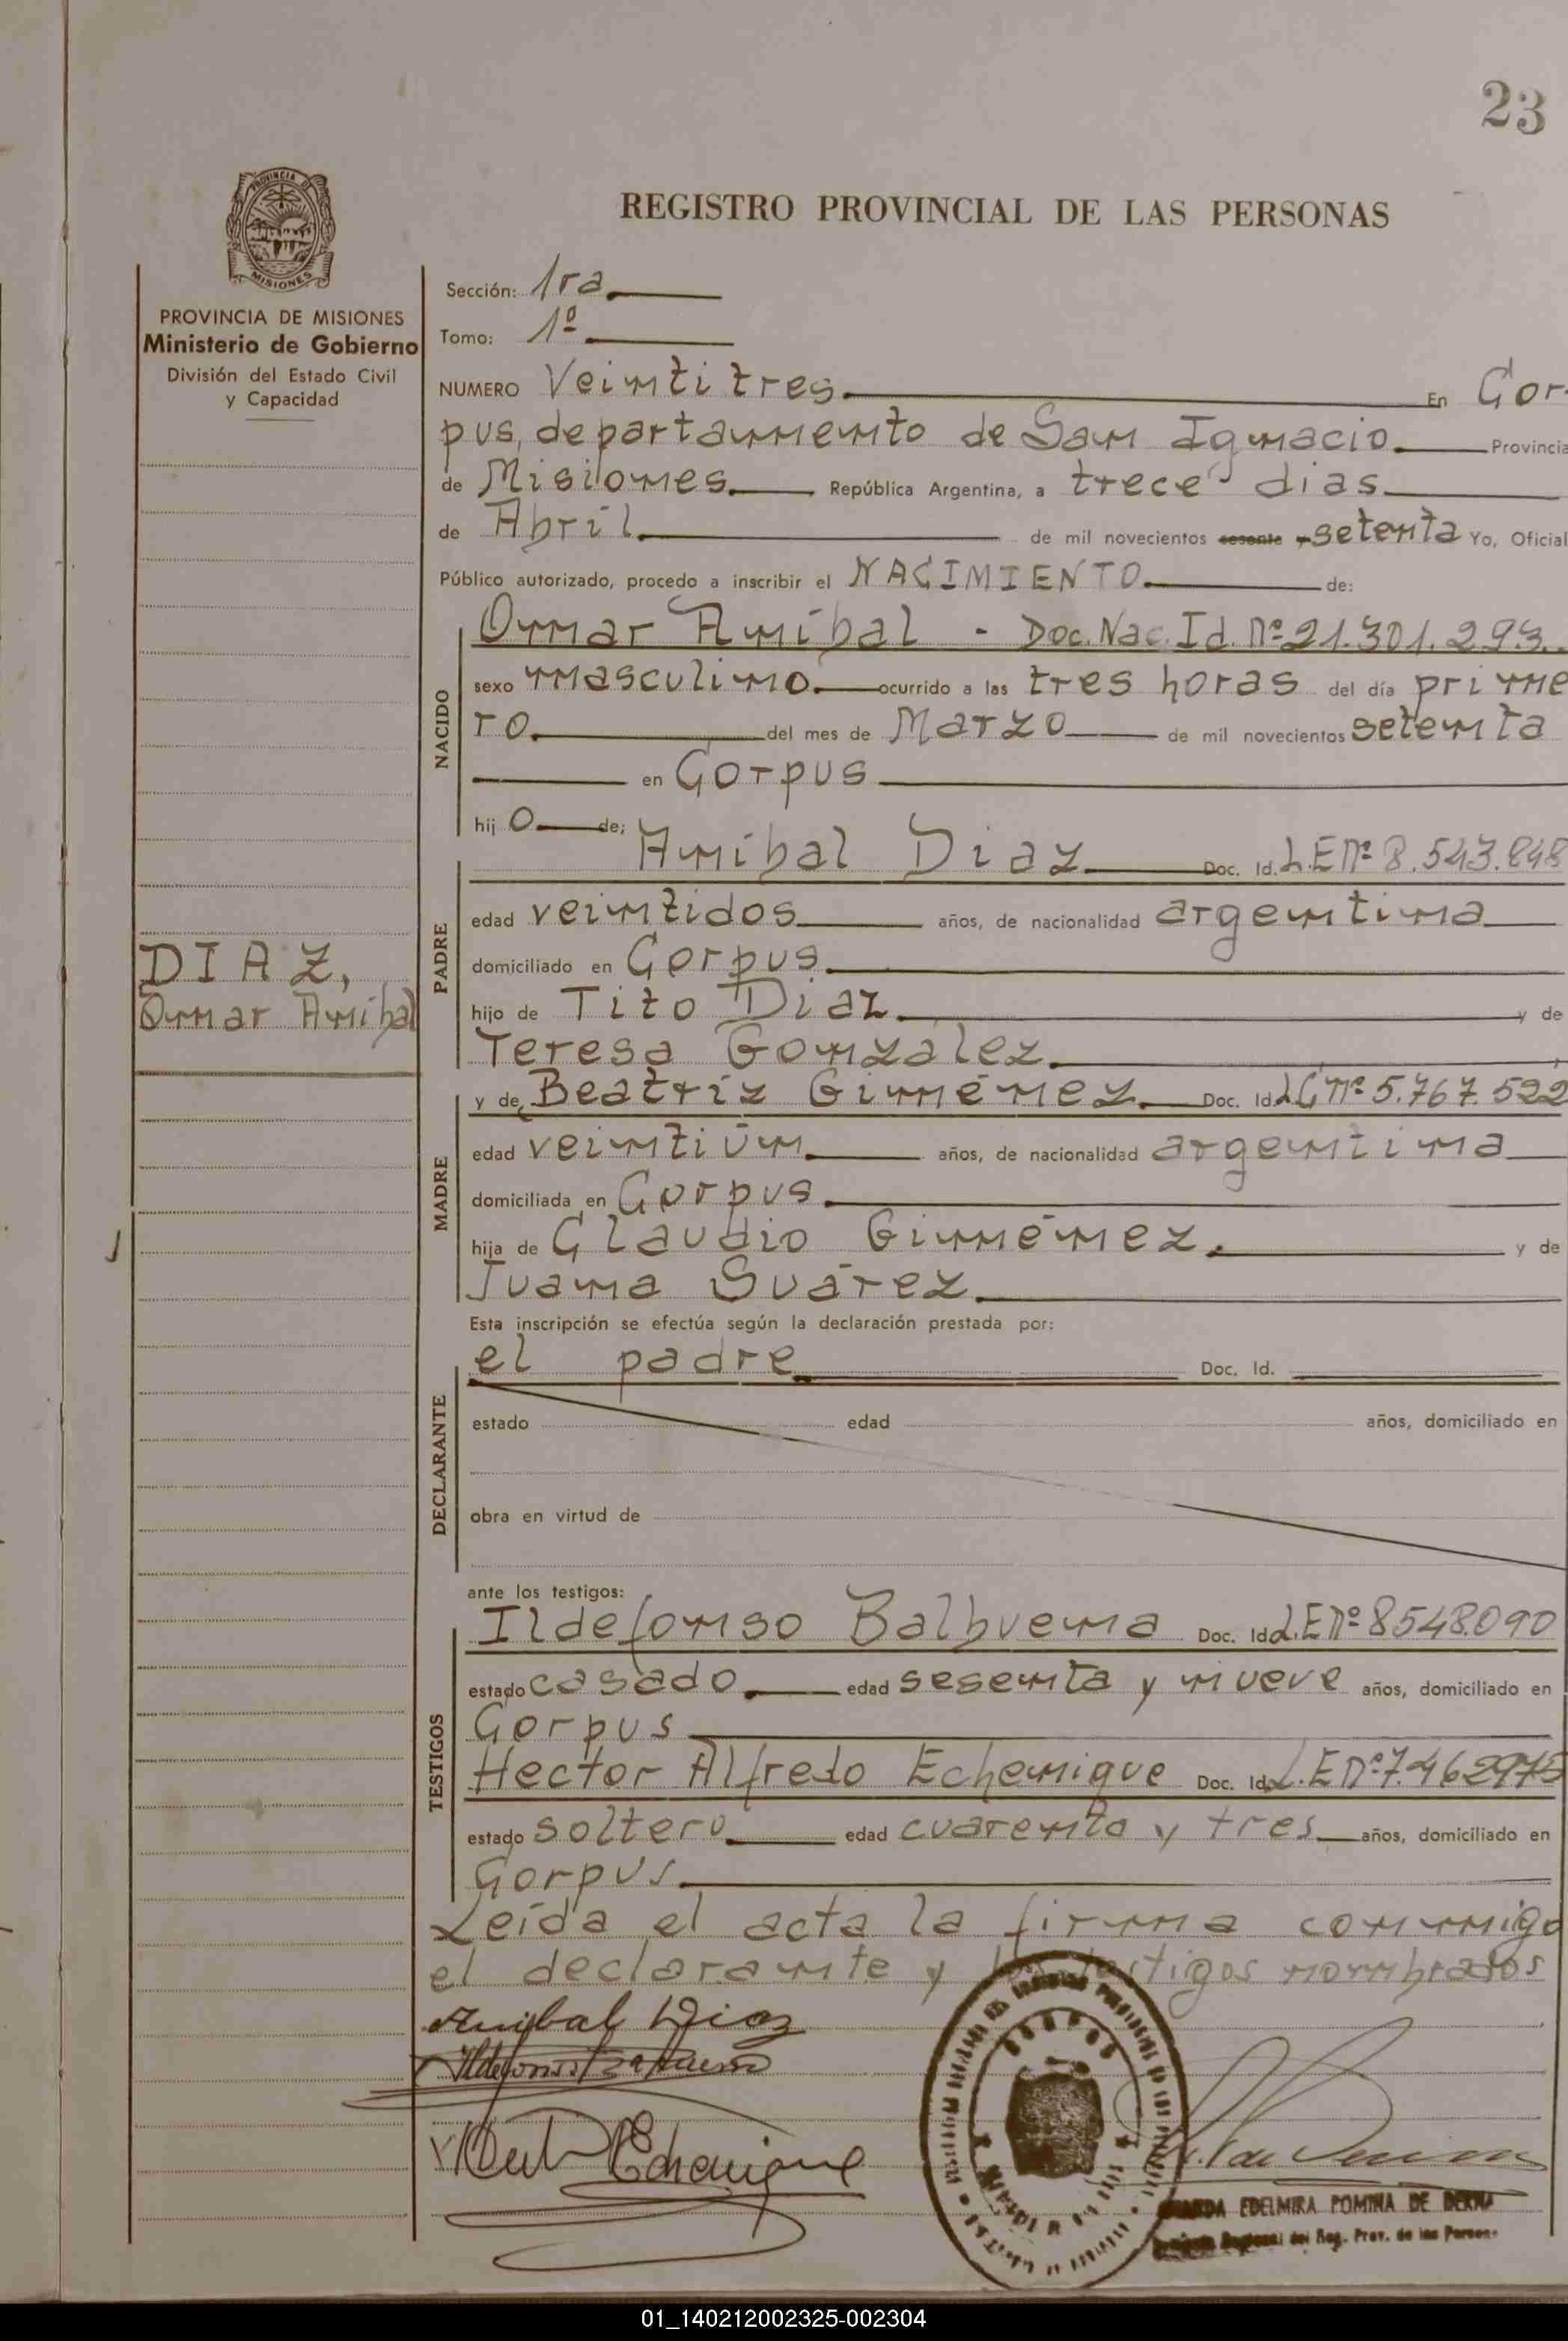 23
PROVINCIA DE
MISIONES
REGISTRO PROVINCIAL DE LAS PERSONAS
PROVINCIA DE MISIONES
Ministerio de Gobierno
División del Estado Civil
y Capacidad
DIAZ,
Omar Aníbal
Sección: 1ra
Tomo: 1º
NUMERO Veintitres. En Cor-
pus, departamento de San Ignacio. Provincia
de Misiones. República Argentina, a trece días
de Abril. de mil novecientos sesenta y setenta Yo, Oficial
Público autorizado, procedo a inscribir el NACIMIENTO. de:
NACIDO
Omar Aníbal - Doc. Nac. Id. Nº 21.301.293.
sexo masculino. ocurrido a las tres horas del día prime
ro. del mes de Marzo de mil novecientos setenta
en Corpus
hij o de:
PADRE
Aníbal Diaz Doc. Id. L.E Nº 8.543.848
edad veintidos años, de nacionalidad argentina
domiciliado en Corpus.
hijo de Tito Diaz. y de
Teresa González.
MADRE
y de Beatríz Giménez. Doc. Id. L.C Nº 5.767.522
edad veintiún. años, de nacionalidad argentina
domiciliada en Corpus.
hija de Claudio Giménez. y de
Juana Suárez.
Esta inscripción se efectúa según la declaración prestada por:
DECLARANTE
el padre Doc. Id.
estado edad años, domiciliado en
obra en virtud de
ante los testigos:
TESTIGOS
Ildefonso Balbuena Doc. Id. L.E Nº 8548.090
estado casado. edad sesenta y nueve años, domiciliado en
Corpus
Hector Alfredo Echenique Doc. Id. L.E Nº 7.462975
estado soltero edad cuarenta y tres años, domiciliado en
Corpus.
Leída el acta la firma conmigo
el declarante y los testigos nombrados
Anibal Diaz
Echenique
EDELMIRA POMINA DE
del Reg. Prov. de las Personas
01_140212002325-002304